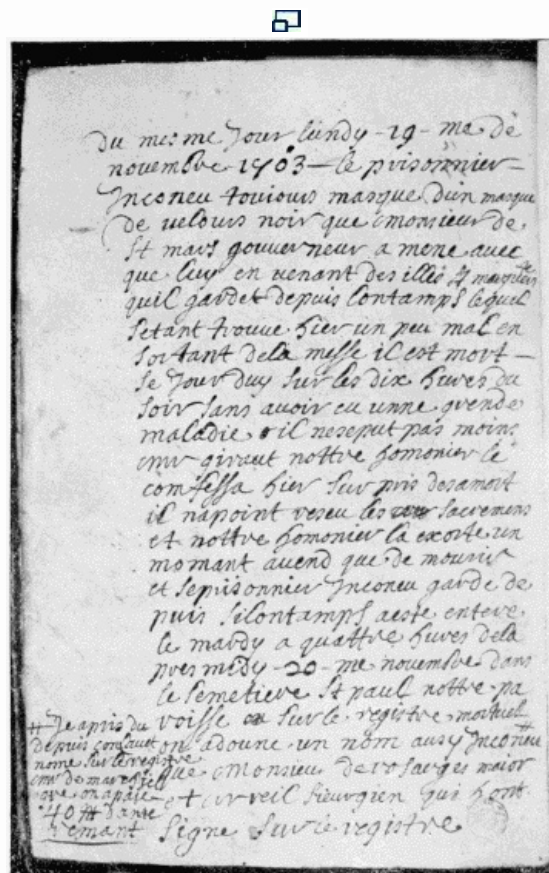 du mesme jour lundy - 19 - me de
novembre 1703 — le prisonnier —
Inconeu toujours masque dun masque
de velours noir que monsieur de
St mars gouverneur a mene avec
que luy en venant des illes Ste marguerite
quil gardet depuis lontamps lequel
setant trouve hier un peu mal en
sortant de la messe il est mort —
se jour duy sur les dix hures du
soir sans avoir eu unne grende
maladie il ne seput pas moins
mr giraut nottre homonier le
comfessa hier surpris de sa mort
il na point reseu les sacremens
et nottre homonier la exorte un
momant avend que de mourir
et se prisonnier Inconeu garde de
puis si lontamps a este entere
le mardy a quattre hures de la
pres midy - 20 - me novembre dans
le semetiere St paul nottre pa
voisse sur le registre mortuel
on a donne un nom ausy Inconeu
que monsieur de rosarges maior
et arreil sieurgien qui hont
signe sur le registre
# je apris du
depuis con lavet
nome sur le registre
mr de marchiel
que on a paie
40 # dante
remant